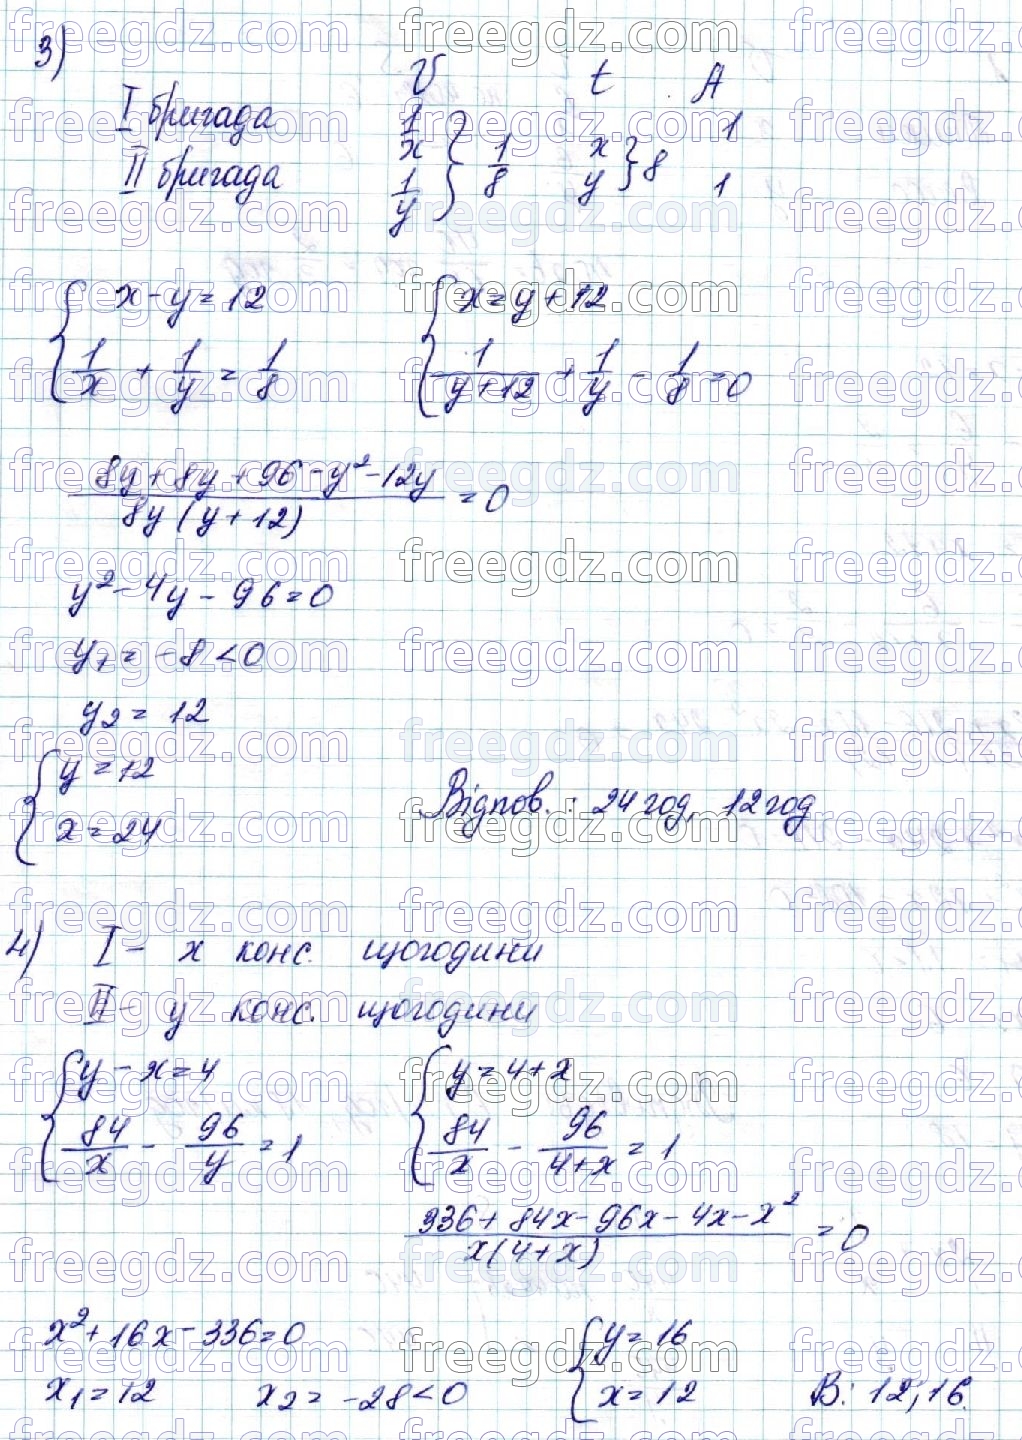 3)
V t A
I бригада 1/x } 1/8 x } 8 1
II бригада 1/y y 1
{ x - y = 12 { x = y + 12
1/x + 1/y = 1/8 1/(y+12) + 1/y - 1/8 = 0
(8y + 8y + 96 - y² - 12y)/(8y(y+12)) = 0
y² - 4y - 96 = 0
y₁ = -8 < 0
y₂ = 12
{ y = 12
x = 24 Відпов.: 24 год, 12 год
4) I - x конс. щогодини
II - y конс. щогодини
{ y - x = 4 { y = 4 + x
84/x - 96/y = 1 84/x - 96/(4+x) = 1
(336 + 84x - 96x - 4x - x²)/(x(4+x)) = 0
x² + 16x - 336 = 0 { y = 16
x₁ = 12 x₂ = -28 < 0 x = 12 В: 12, 16.
freegdz.com